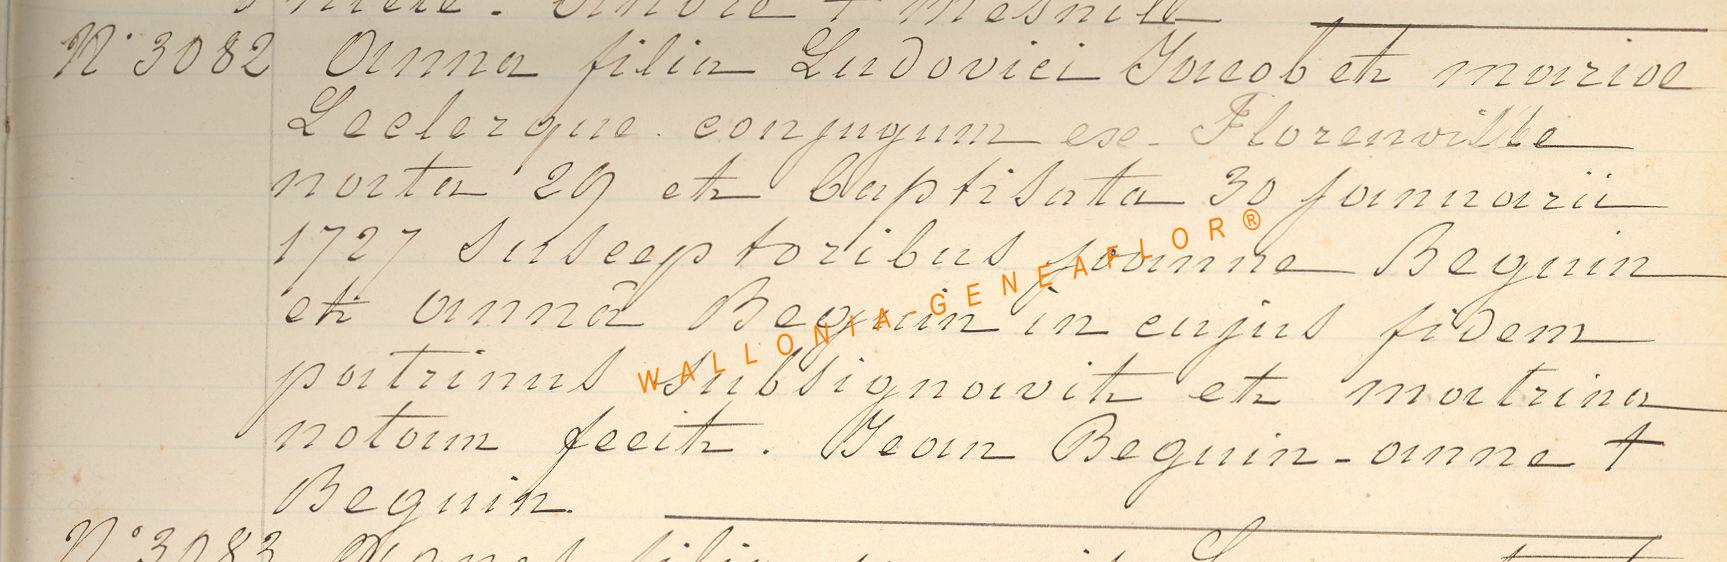 Andre + Mesnill
N° 3082 Anna filia Ludovici Jacob et mariae
Leclerque. conjugum ex. Florenville
nata 29 et baptisata 30 januarii
1727 susceptoribus joanne Beguin
et annâ Beguin in cujus fidem
patrinus subsignavit et matrina
notam fecit. Jean Beguin - anne +
Beguin.
N° 3083 filia
WALLONIA-GENEAFLOR®